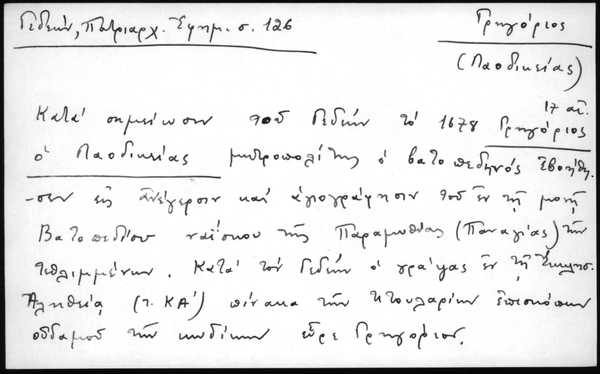 Γεδεών, Πατριαρχ. Εφημ. σ. 126
Γρηγόριος
(Λαοδικείας)
17 αἰ.
Κατά σημείωσιν τοῦ Γεδεών τό 1678 Γρηγόριος
ὁ Λαοδικείας μητροπολίτης ὁ βατοπεδηνός ἐβοήθη-
-σεν εἰς ἀνέγερσιν καί ἁγιογράφησιν τοῦ ἐν τῇ μονῇ
Βατοπεδίου ναΐσκου τῆς Παραμυθίας (Παναγίας) τῶν
τεθλιμμένων. Κατά τόν Γεδεών ὁ γράψας ἐν τῇ Ἐκκλησ.
Ἀληθείᾳ (τ. ΚΑ') πίνακα τῶν τιτουλαρίων ἐπισκόπων
οὐδαμοῦ τῶν κωδίκων εὗρε Γρηγόριον.